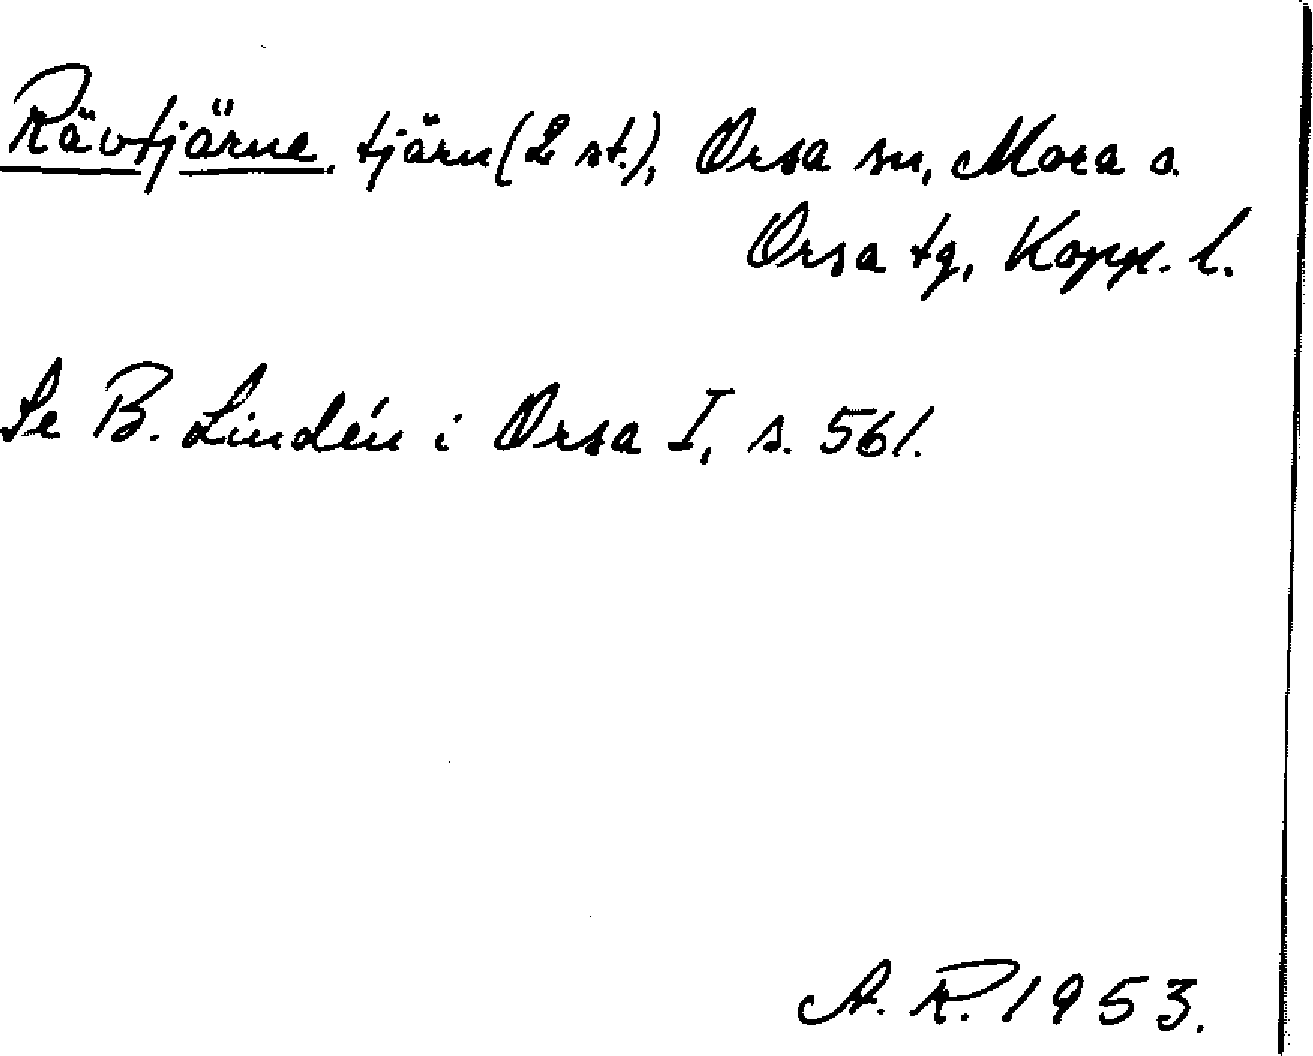 Rävtjärne, tjärn (2 st.), Orsa sn, Mora o.
Orsa tg, Kopp. l.
Se B. Lindén i Orsa I, s. 561.
A. R. 1953.